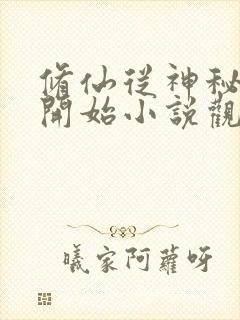 脩仙従神秘
開始小說觀
曦家阿蘿呀